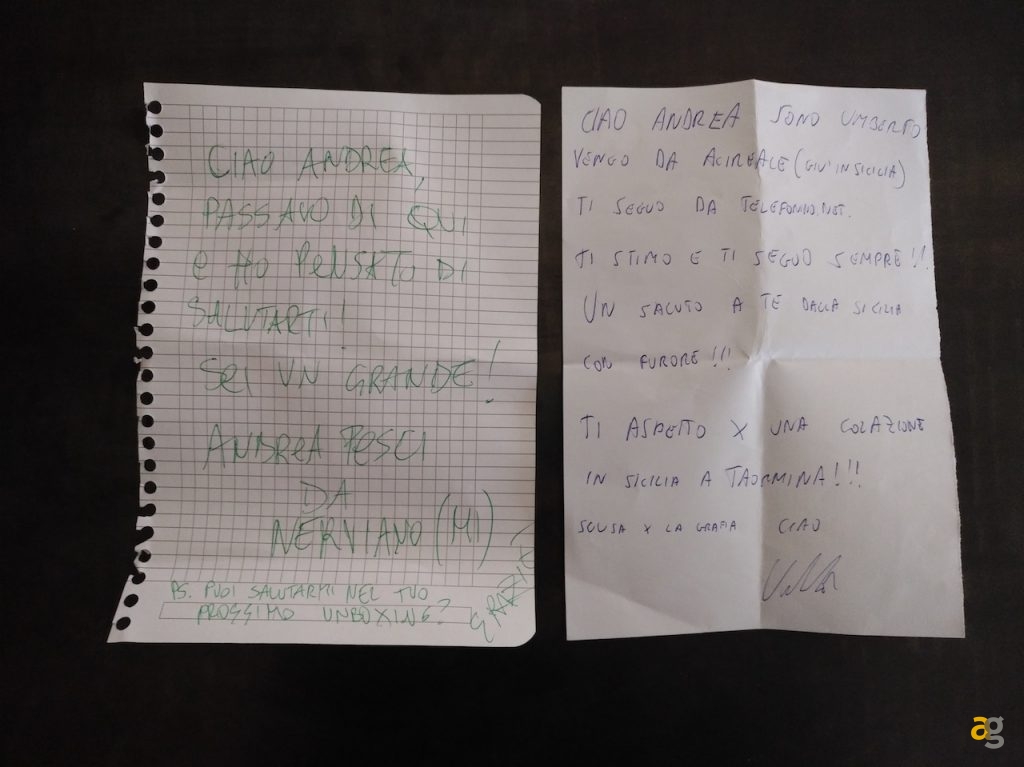 CIAO ANDREA,
PASSAVO DI QUI
E HO PENSATO DI
SALUTARTI!
SEI UN GRANDE!
ANDREA PESCI
DA
NERVIANO (MI)
PS. PUOI SALUTARMI NEL TUO
PROSSIMO UNBOXING?
GRAZIE!
CIAO ANDREA SONO UMBERTO
VENGO DA ACIREALE (GIU' IN SICILIA)
TI SEGUO DA TELEFONINO.NET.
TI STIMO E TI SEGUO SEMPRE!!
UN SALUTO A TE DALLA SICILIA
CON FURORE!!!
TI ASPETTO X UNA COLAZIONE
IN SICILIA A TAORMINA!!!
SCUSA X LA GRAFIA CIAO
ag